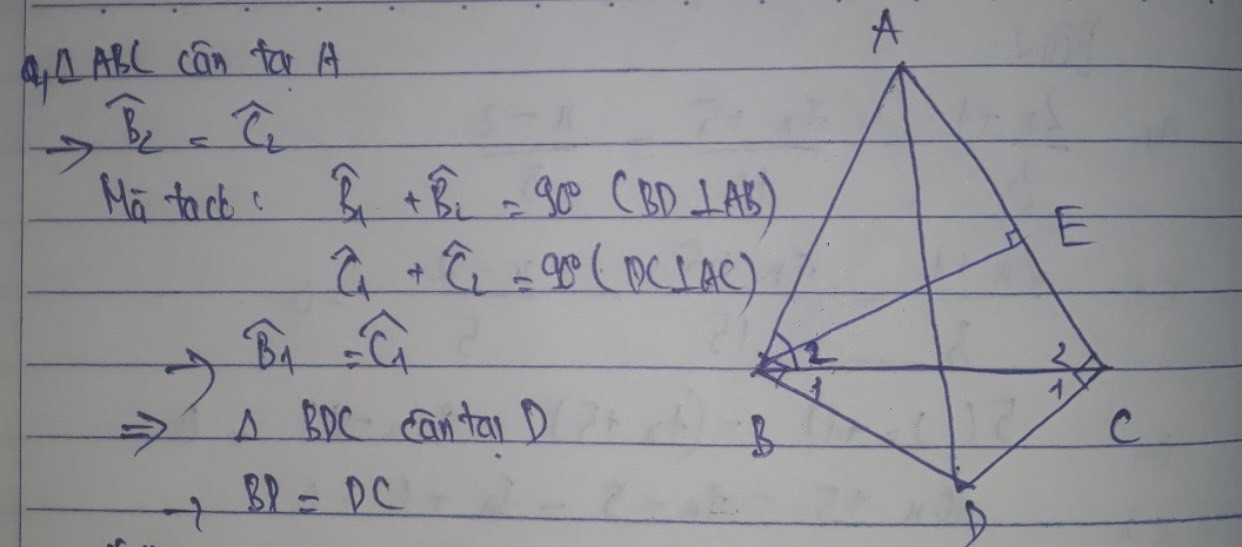 a, Δ ABC cân tại A
⇒ B̂₂ = Ĉ₂
Mà ta có : B̂₁ + B̂₂ = 90° (BD ⊥ AB)
Ĉ₁ + Ĉ₂ = 90° (DC ⊥ AC)
⇒ B̂₁ = Ĉ₁
⇒ Δ BDC cân tại D
→ BD = DC
A
E
2
2
1
1
B
C
D